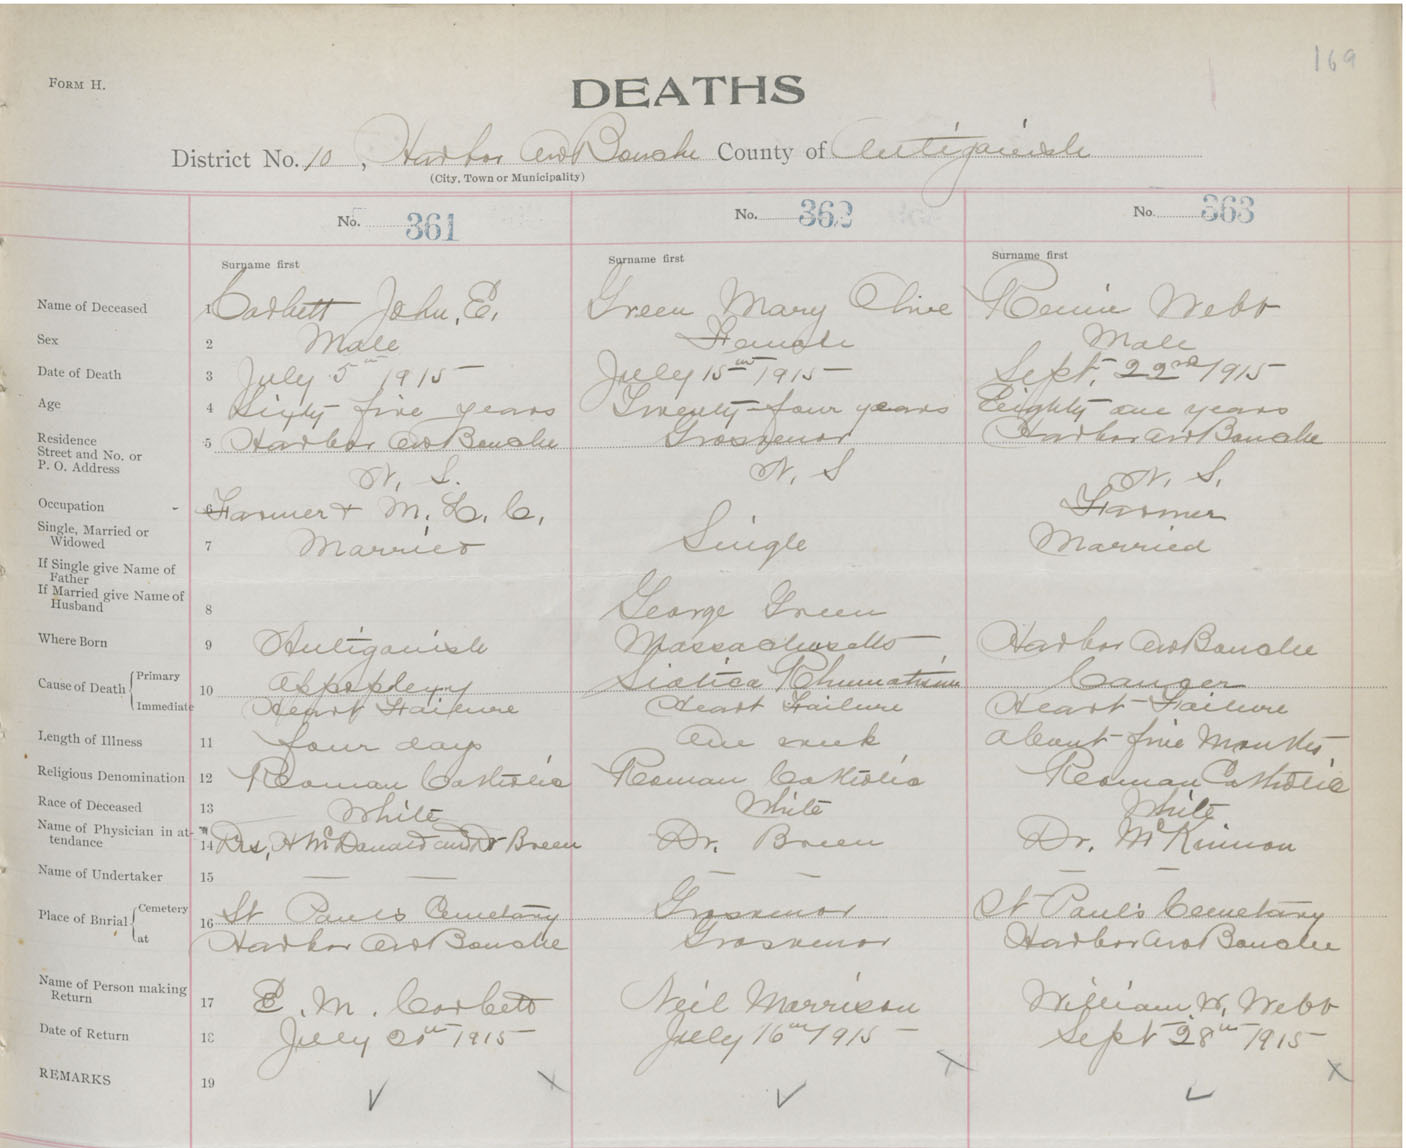 169
FORM H.
DEATHS
District No. 10, Harbor au Bouche County of Antigonish
(City, Town or Municipality)
No. 361 No. 362 No. 363
Surname first Surname first Surname first
Name of Deceased 1 Corbett John, E. Green Mary Olive Webb
Sex 2 Male Female Male
Date of Death 3 July 5th 1915 July 15th 1915 Sept. 22nd 1915
Age 4 Sixty five years Twenty-four years Eighty one years
Residence
Street and No. or
P. O. Address
5 Harbor au Bouche Grosvenor Harbor au Bouche
N. S. N. S N. S.
Occupation 6 Farmer & M. L. C. Farmer
Single, Married or
Widowed
7 Married Single Married
If Single give Name of
Father
If Married give Name of
Husband
8 George Green
Where Born 9 Antigonish Massachusetts Harbor au Bouche
Cause of Death { Primary 10 Appoplexy Siatica Rhumatism Cancer
Immediate Heart Failure Heart Failure Heart Failure
Length of Illness 11 four days One week about five Months
Religious Denomination 12 Roman Catholic Roman Catholic Roman Catholic
Race of Deceased 13 White White White
Name of Physician in at-
tendance
14 Drs. H McDonald and Dr Breen Dr. Breen Dr. McKinnon
Name of Undertaker 15 — — — — — —
Place of Burial { Cemetery 16 St Paul's Cemetary Grosvenor St Paul's Cemetary
at Harbor au Bouche Grosvenor Harbor au Bouche
Name of Person making
Return
17 E. M. Corbett Neil Morrison William W. Webb
Date of Return 18 July 1915 July 16th 1915 Sept 28th 1915
REMARKS 19